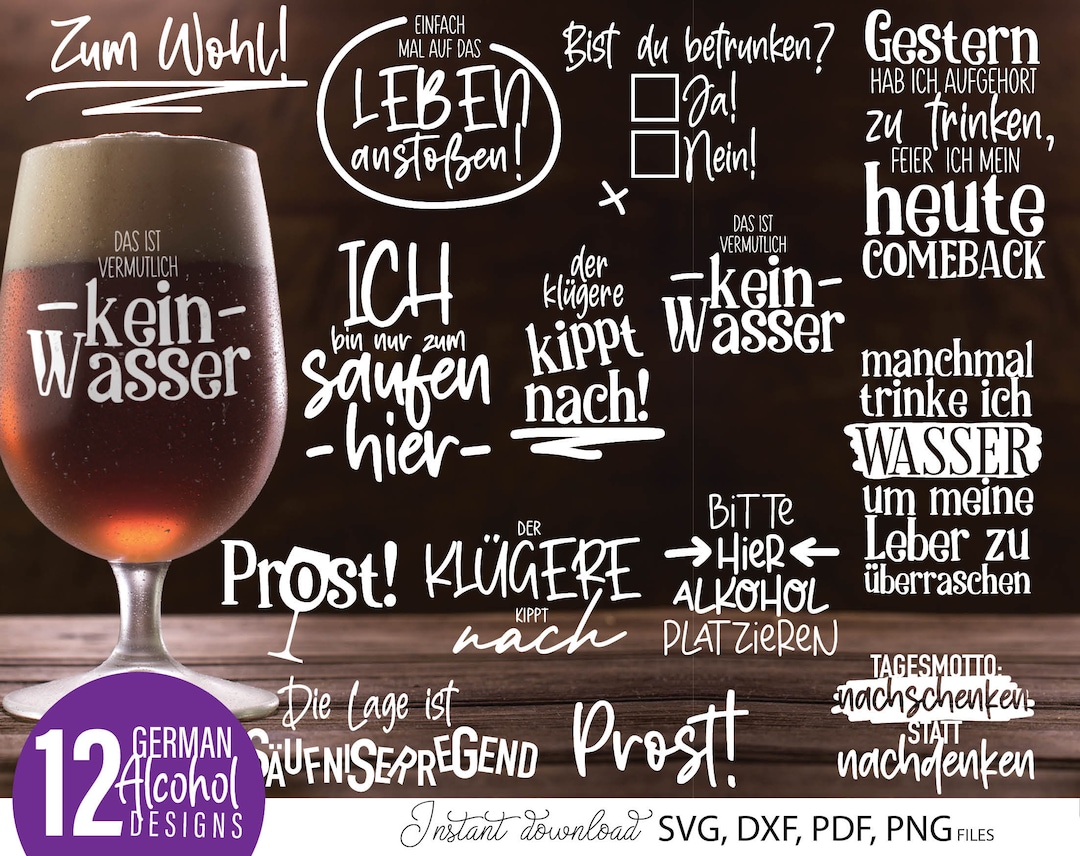 Zum Wohl!
EINFACH
MAL AUF DAS
LEBEN
anstoßen!
Bist du betrunken?
Ja!
Nein!
Gestern
HAB ICH AUFGEHÖRT
zu trinken,
FEIER ICH MEIN
heute
COMEBACK
DAS IST
VERMUTLICH
-kein-
Wasser
ICH
bin nur zum
saufen
-hier-
der
klügere
kippt
nach!
DAS IST
VERMUTLICH
-kein-
Wasser
manchmal
trinke ich
WASSER
um meine
Leber zu
überraschen
Prost!
DER
KLÜGERE
KIPPT
nach
BiTTe
HieR
ALKOHOL
PLATZieReN
Die Lage ist
SÄUFNiSERREGEND
Prost!
TAGESMOTTO:
nachschenken
STATT
nachdenken
12 GERMAN
Alcohol
DESIGNS
Instant download SVG, DXF, PDF, PNG FILES